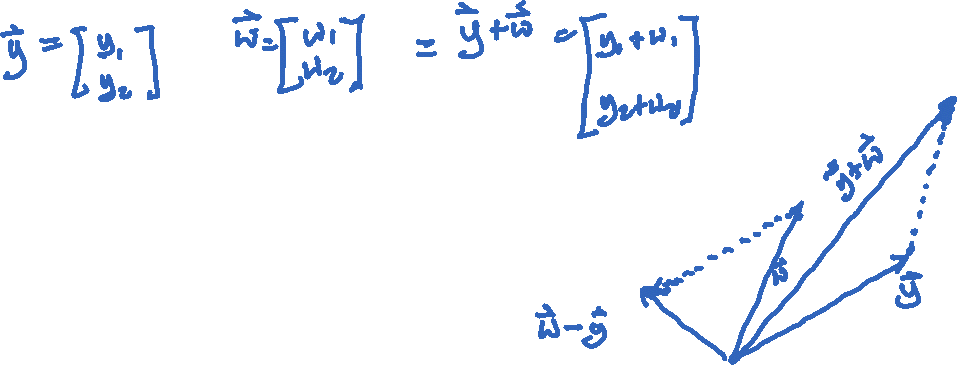 y⃗ = [y₁ y₂] w⃗ = [w₁ w₂] = y⃗ + w⃗ = [y₁ + w₁ y₂ + w₂]
y⃗ + w⃗
w⃗
y⃗
w⃗ - y⃗